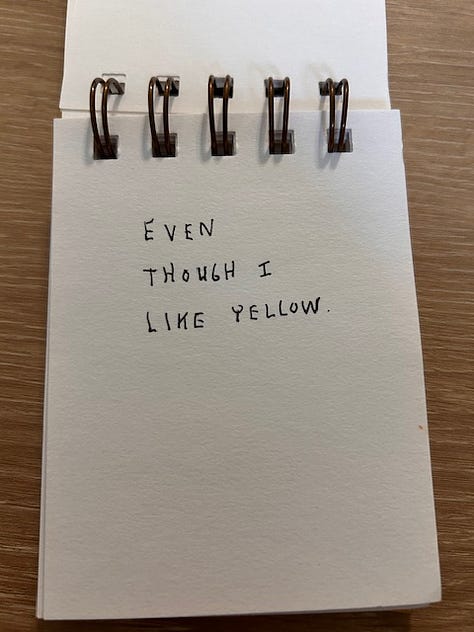 EVEN
THOUGH I
LIKE YELLOW.